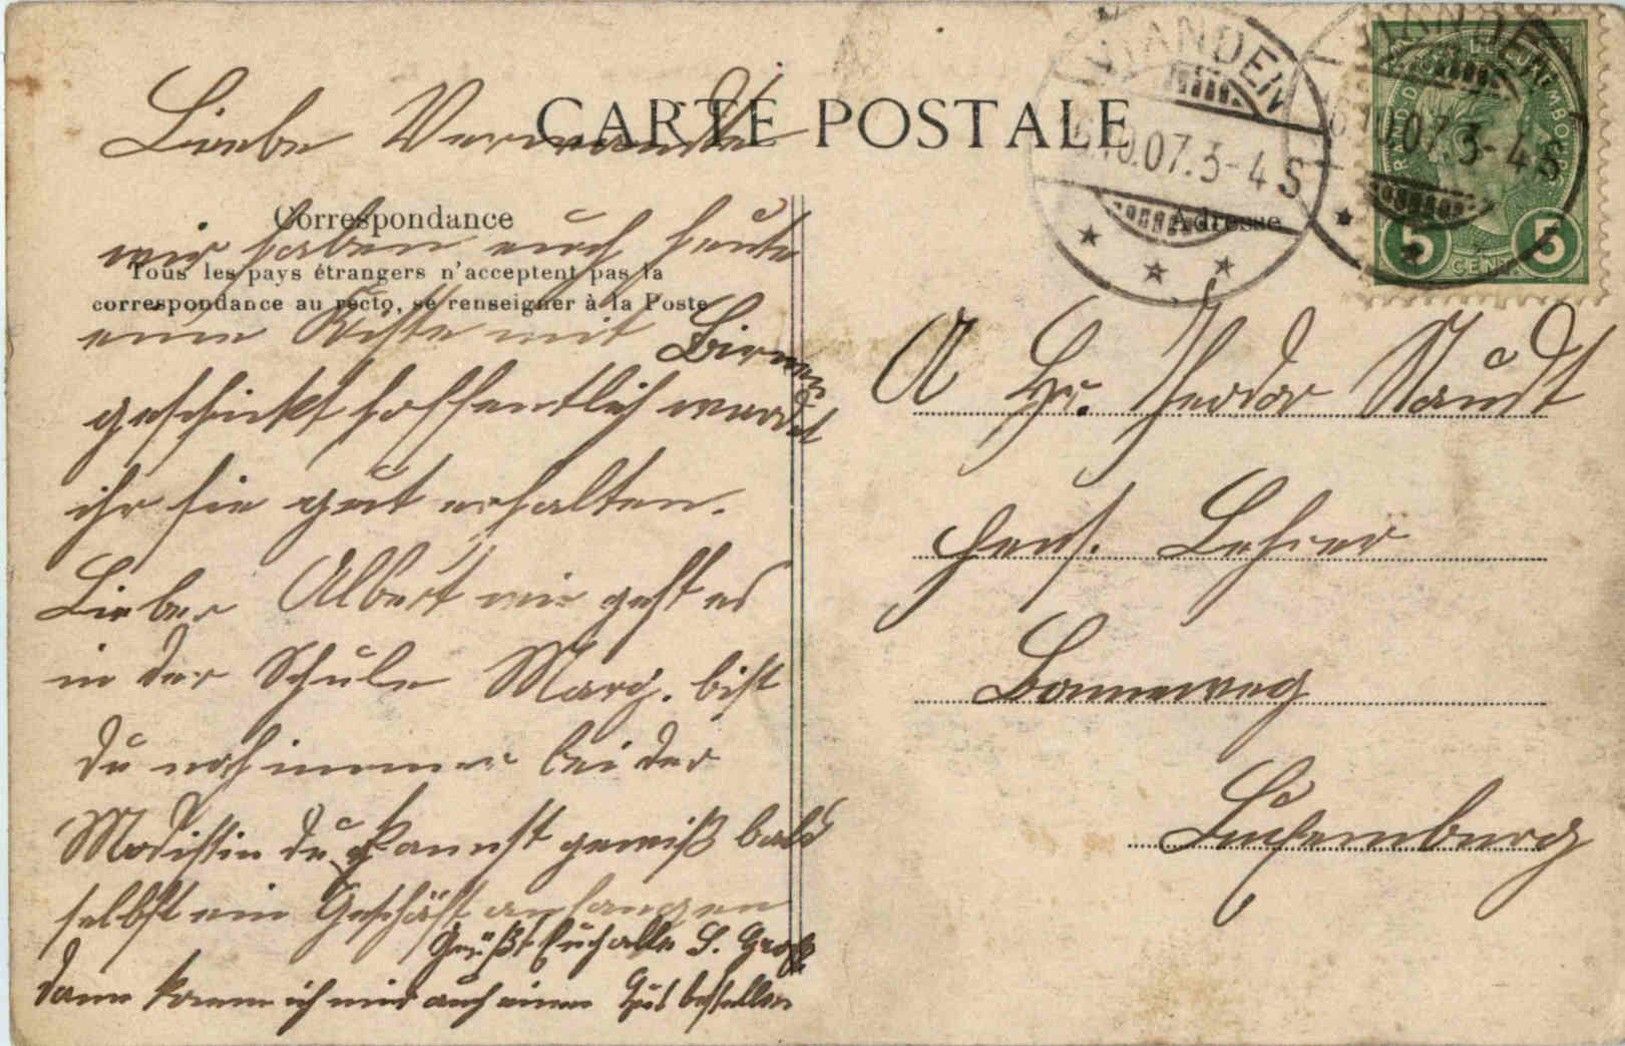 CARTE POSTALE
Correspondance
Tous les pays étrangers n'acceptent pas la
correspondance au recto, se renseigner à la Poste
Liebe Verwandte
wir haben euch heute
eine Kiste mit Birnen
geschickt hoffentlich werdet
ihr sie gut erhalten.
Lieber Albert wie geht es
in der Schule Marg. bist
du noch immer bei der
Modistin du kannst gewiß bald
selbst ein Geschäft anfangen
dann komme ich mir auch einen Hut bestellen
Grüßt Euch alle S.
VIANDEN
10.07.3-4 S
VIANDEN
10.07.3-4 S
5 CENT. 5
Adresse
A Hr. Theodor Staudt
pens. Lehrer
Bonneweg
Luxemburg